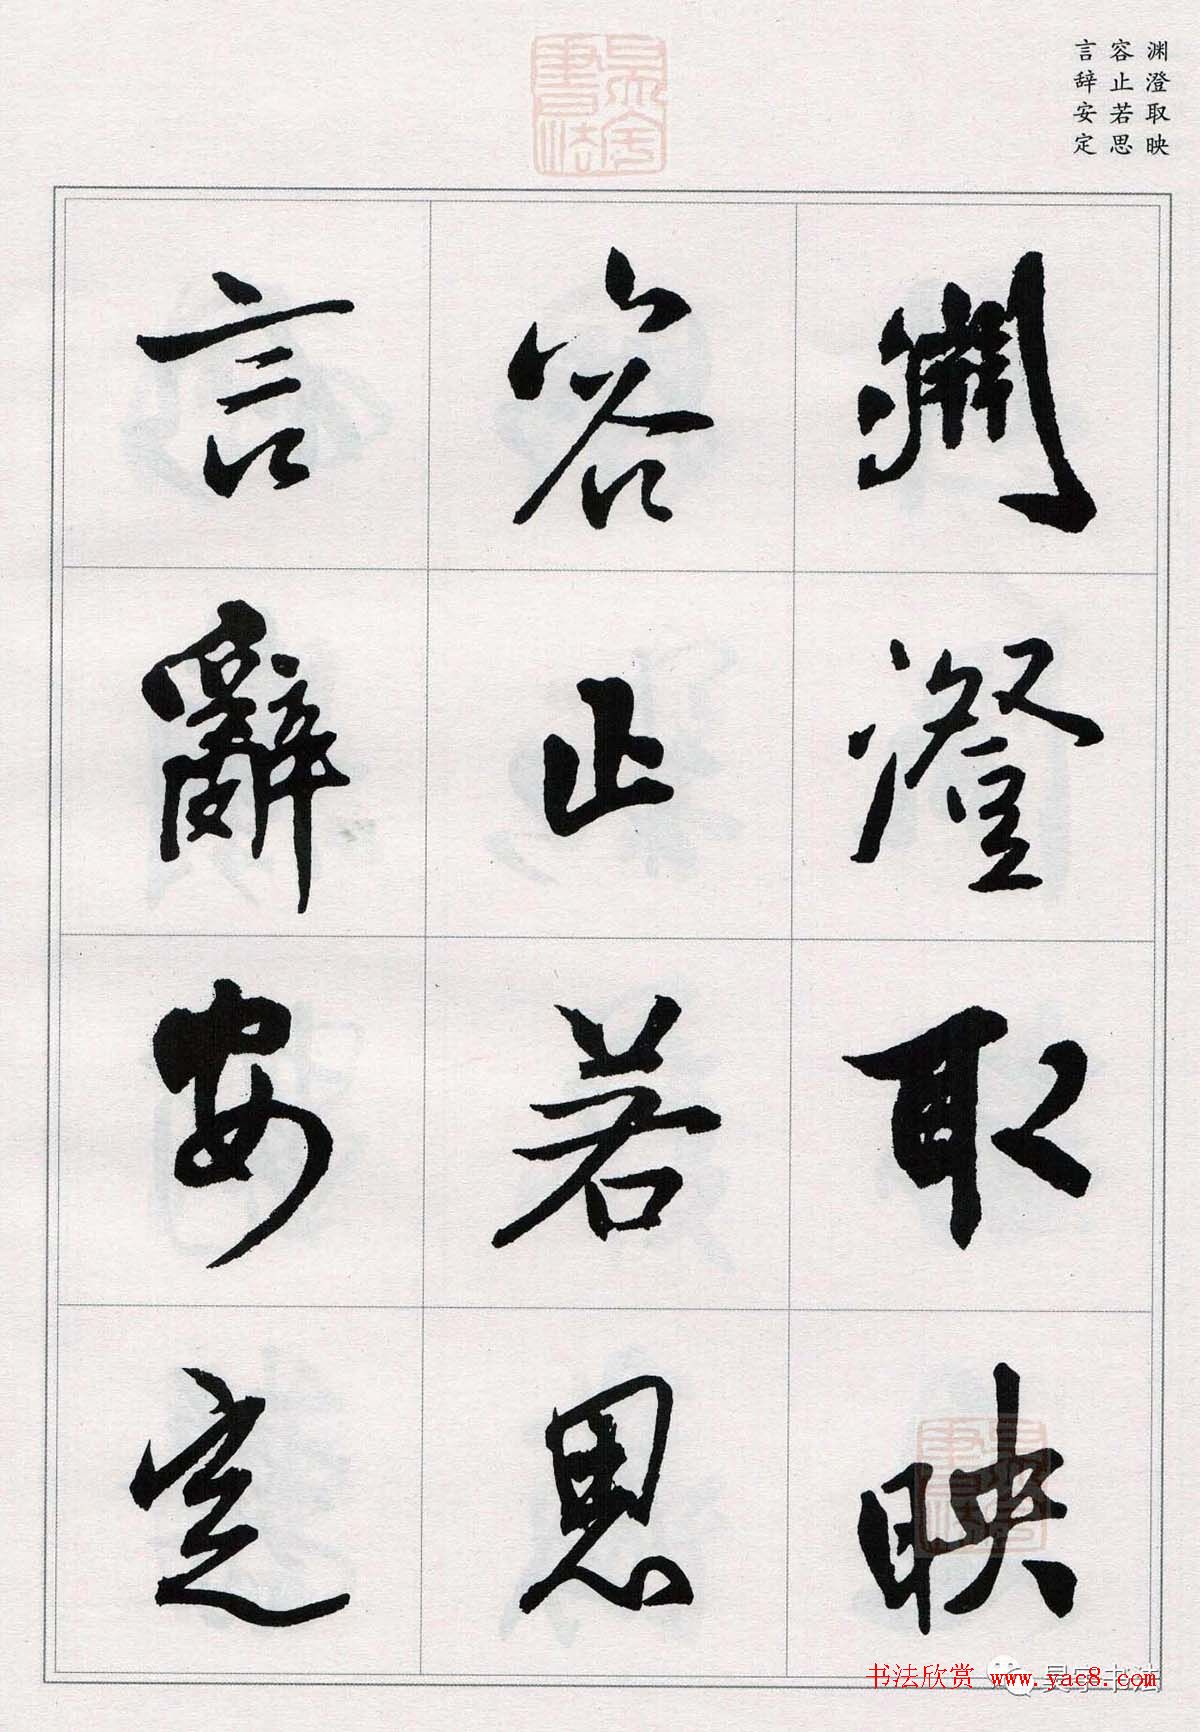 渊澄取映
容止若思
言辞安定
淵澄取映
容止若思
言辭安定
书法欣赏 www.yac8.com
昊宇书法